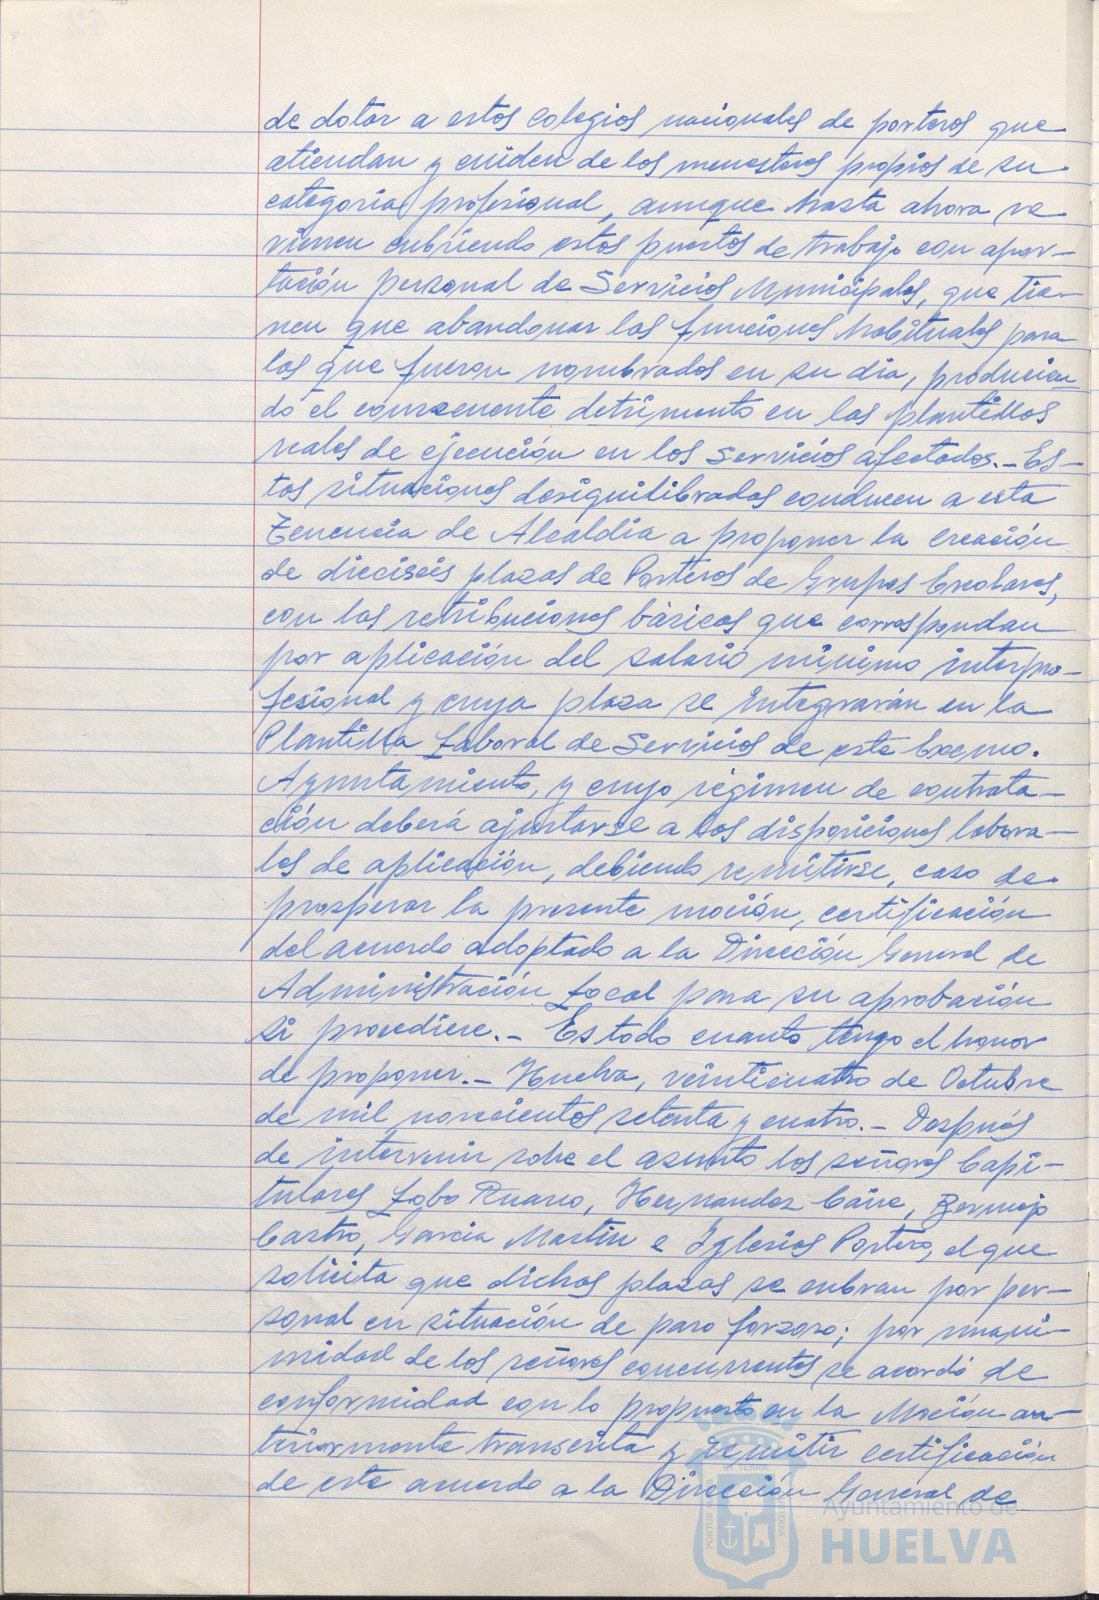 de dotar a estos Colegios nacionales de porteros que
atiendan y cuiden de los menesteres propios de su
categoría profesional, aunque hasta ahora se
vienen cubriendo estos puestos de trabajo con apor-
tación personal de Servicios Municipales, que tie-
nen que abandonar las funciones habituales para
las que fueron nombrados en su día, producien
do el consecuente detrimento en las plantillas
reales de ejecución en los Servicios afectados.- Es-
tas situaciones desiquilibradas conducen a esta
Tenencia de Alcaldía a proponer la creación
de dieciseis plazas de Porteros de Grupos Escolares,
con las retribuciones básicas que correspondan
por aplicación del salario mínimo interpro-
fesional y cuya plaza se integrarán en la
Plantilla Laboral de Servicios de este Excmo.
Ayuntamiento, y cuyo régimen de contrata-
ción deberá ajustarse a las disposiciones labora-
les de aplicación, debiendo remitirse, caso de
prosperar la presente moción, certificación
del acuerdo adoptado a la Dirección General de
Administración Local para su aprobación
si procediere.- Es todo cuanto tengo el honor
de proponer.- Huelva, veinticuatro de Octubre
de mil novecientos setenta y cuatro.- Después
de intervenir sobre el asunto los señores Capi-
tulares Lobo Ruano, Hernandez Cáire, Bermejo
Castro, Garcia Martin e Iglesias Portero, el que
solicita que dichas plazas se cubran por per-
sonal en situación de paro forzoso; por unani-
midad de los señores concurrentes se acordó de
conformidad con lo propuesto en la Moción an-
teriormente transcrita y remitir certificación
de este acuerdo a la Dirección General de
Ayuntamiento de
HUELVA